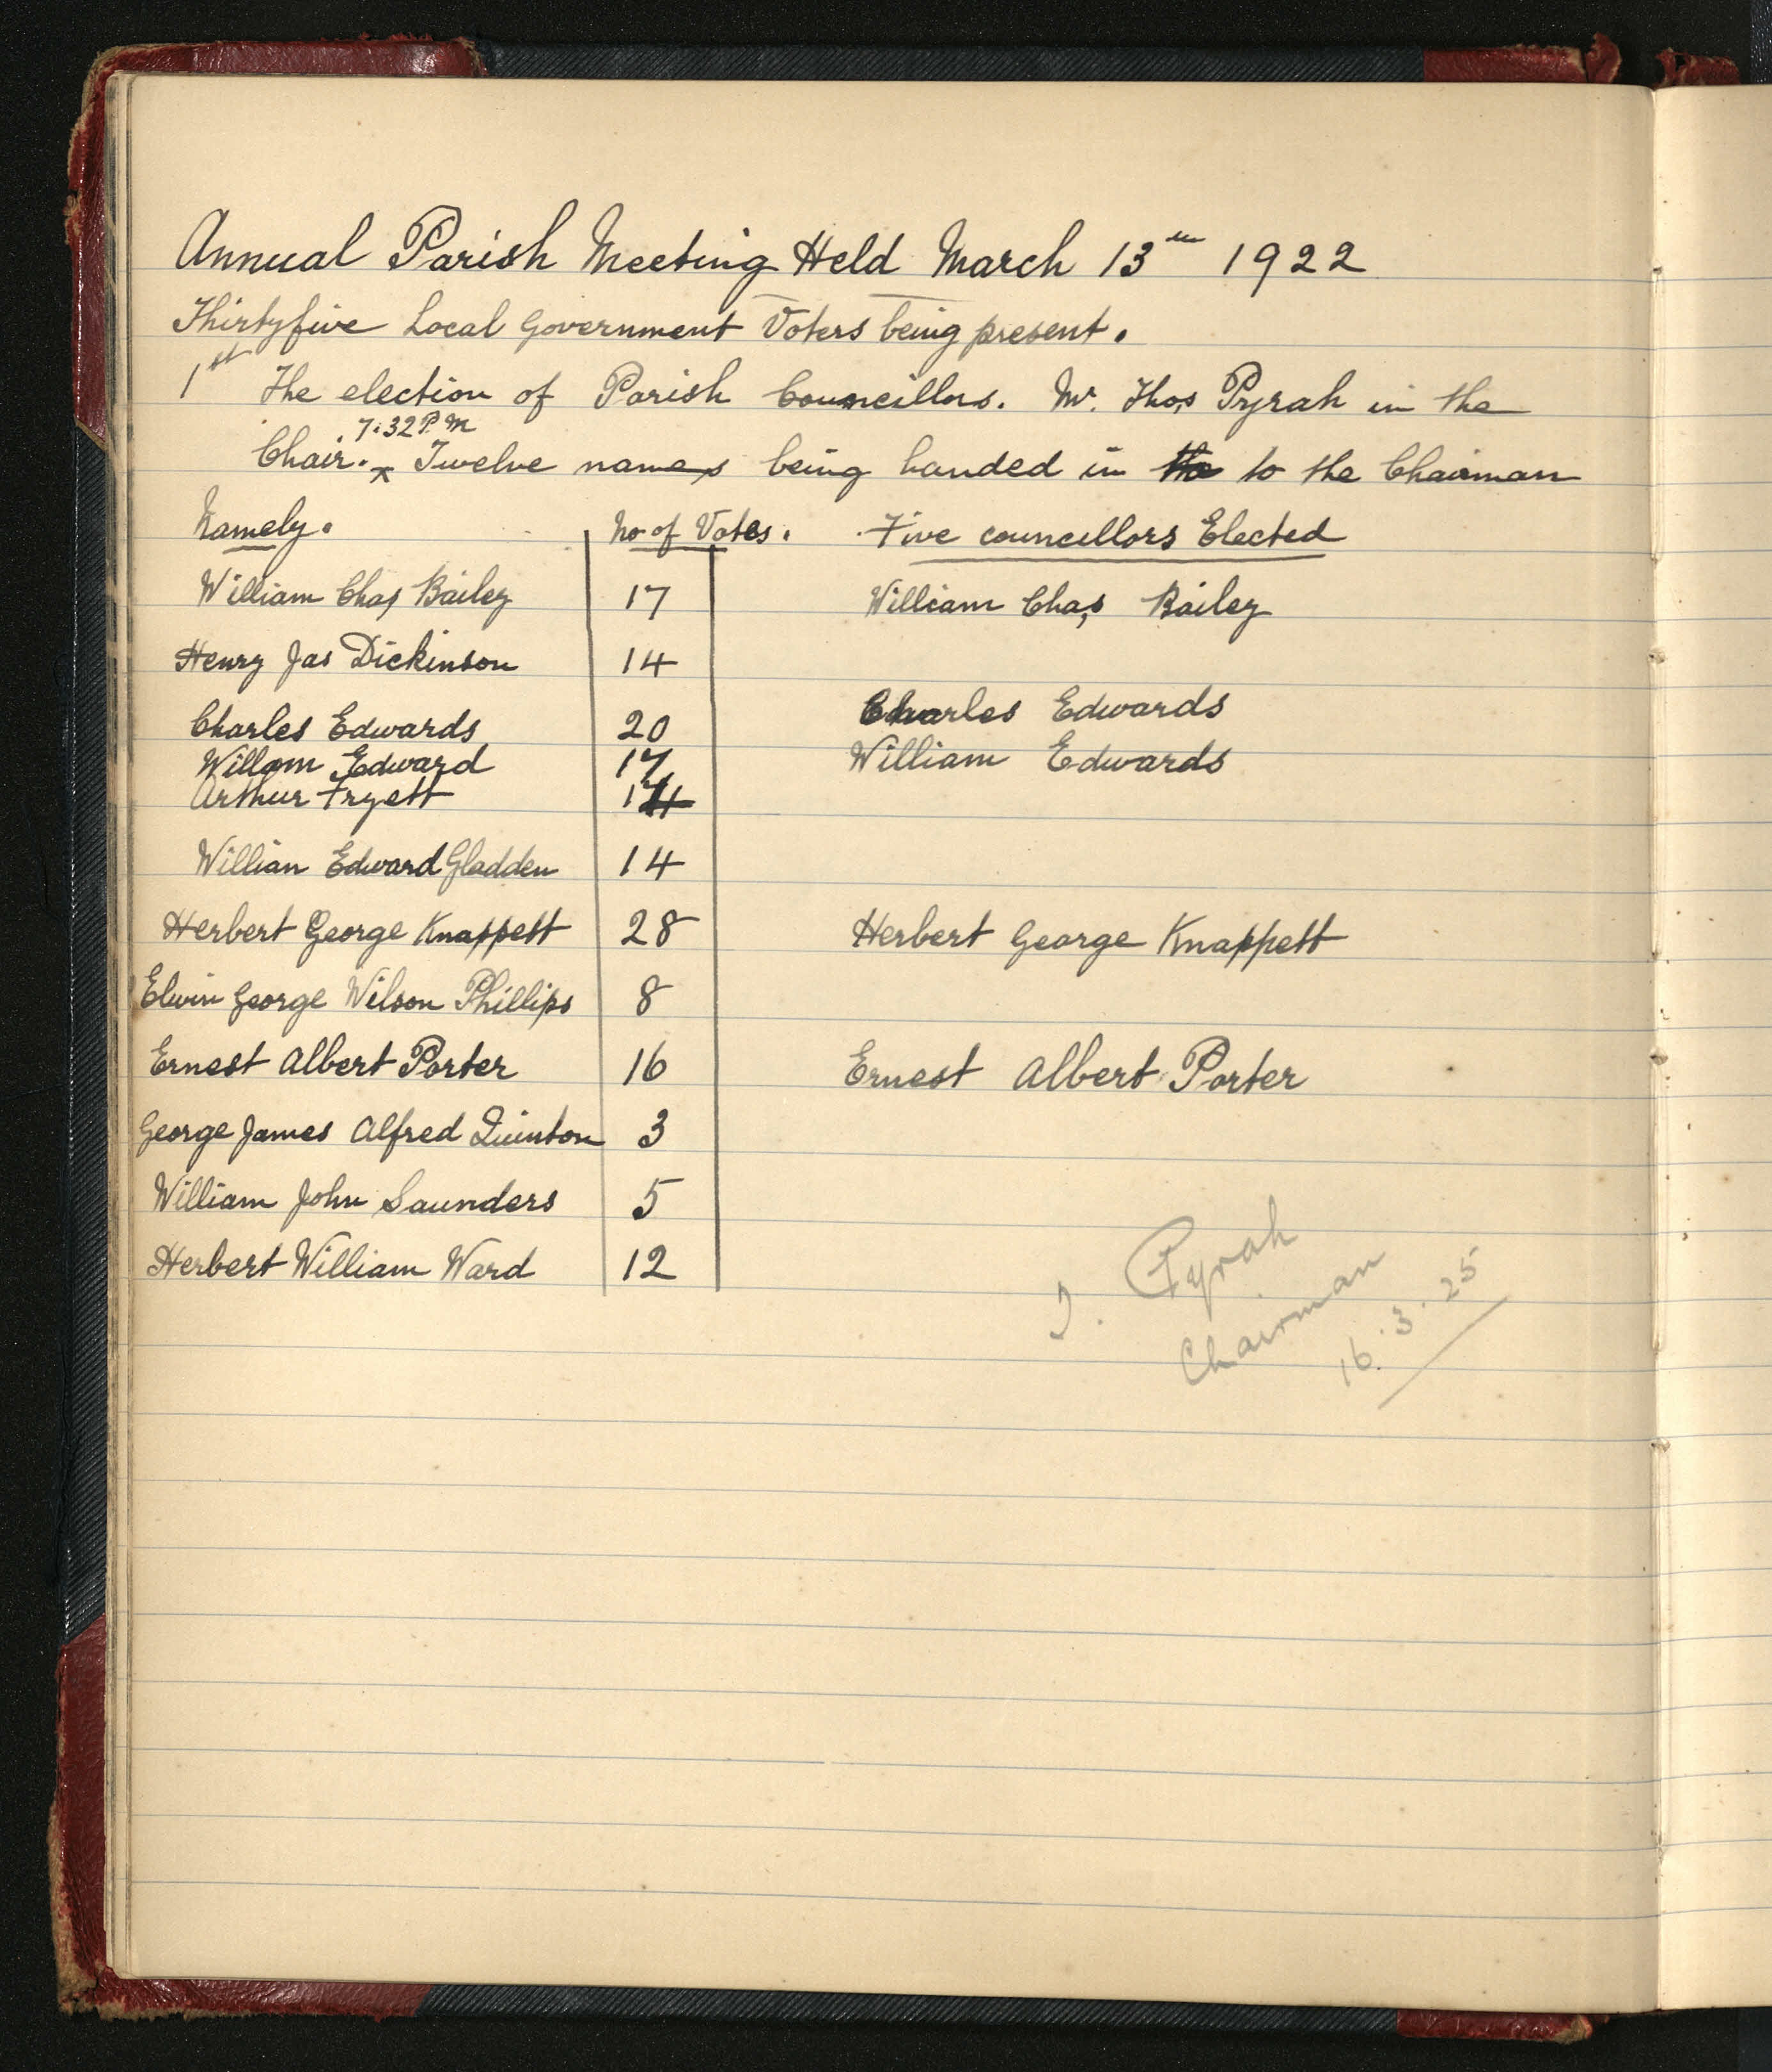 Annual Parish Meeting Held March 13th 1922
Thirtyfive Local Government Voters being present.
1st The election of Parish Councillors. Mr. Thos Pyrah in the
7.32 P.M
Chair. Twelve names being handed in to the Chairman
Namely. No of Votes. Five councillors Elected
William Chas Bailey 17 William Chas Bailey
Henry Jas Dickinson 14
Charles Edwards 20 Charles Edwards
Willam Edward 17 William Edwards
Arthur Fryett 14
William Edward Gladden 14
Herbert George Knappett 28 Herbert George Knappett
Elwin George Wilson Phillips 8
Ernest Albert Porter 16 Ernest Albert Porter
George James Alfred Quinton 3
William John Saunders 5
Herbert William Ward 12
T. Pyrah
Chairman
16.3.25